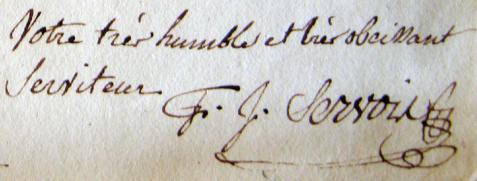 Votre très humble et très obeissant
Serviteur
F. J. Servois